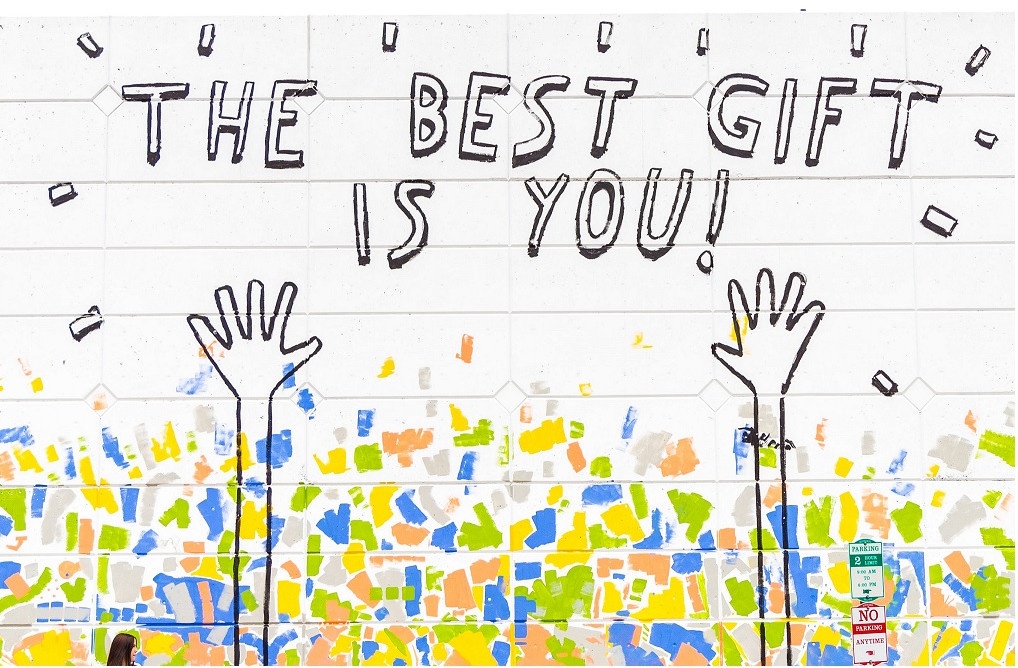 THE BEST GIFT
IS YOU!
PARKING
2 HOUR
LIMIT
TO
NO
PARKING
ANYTIME